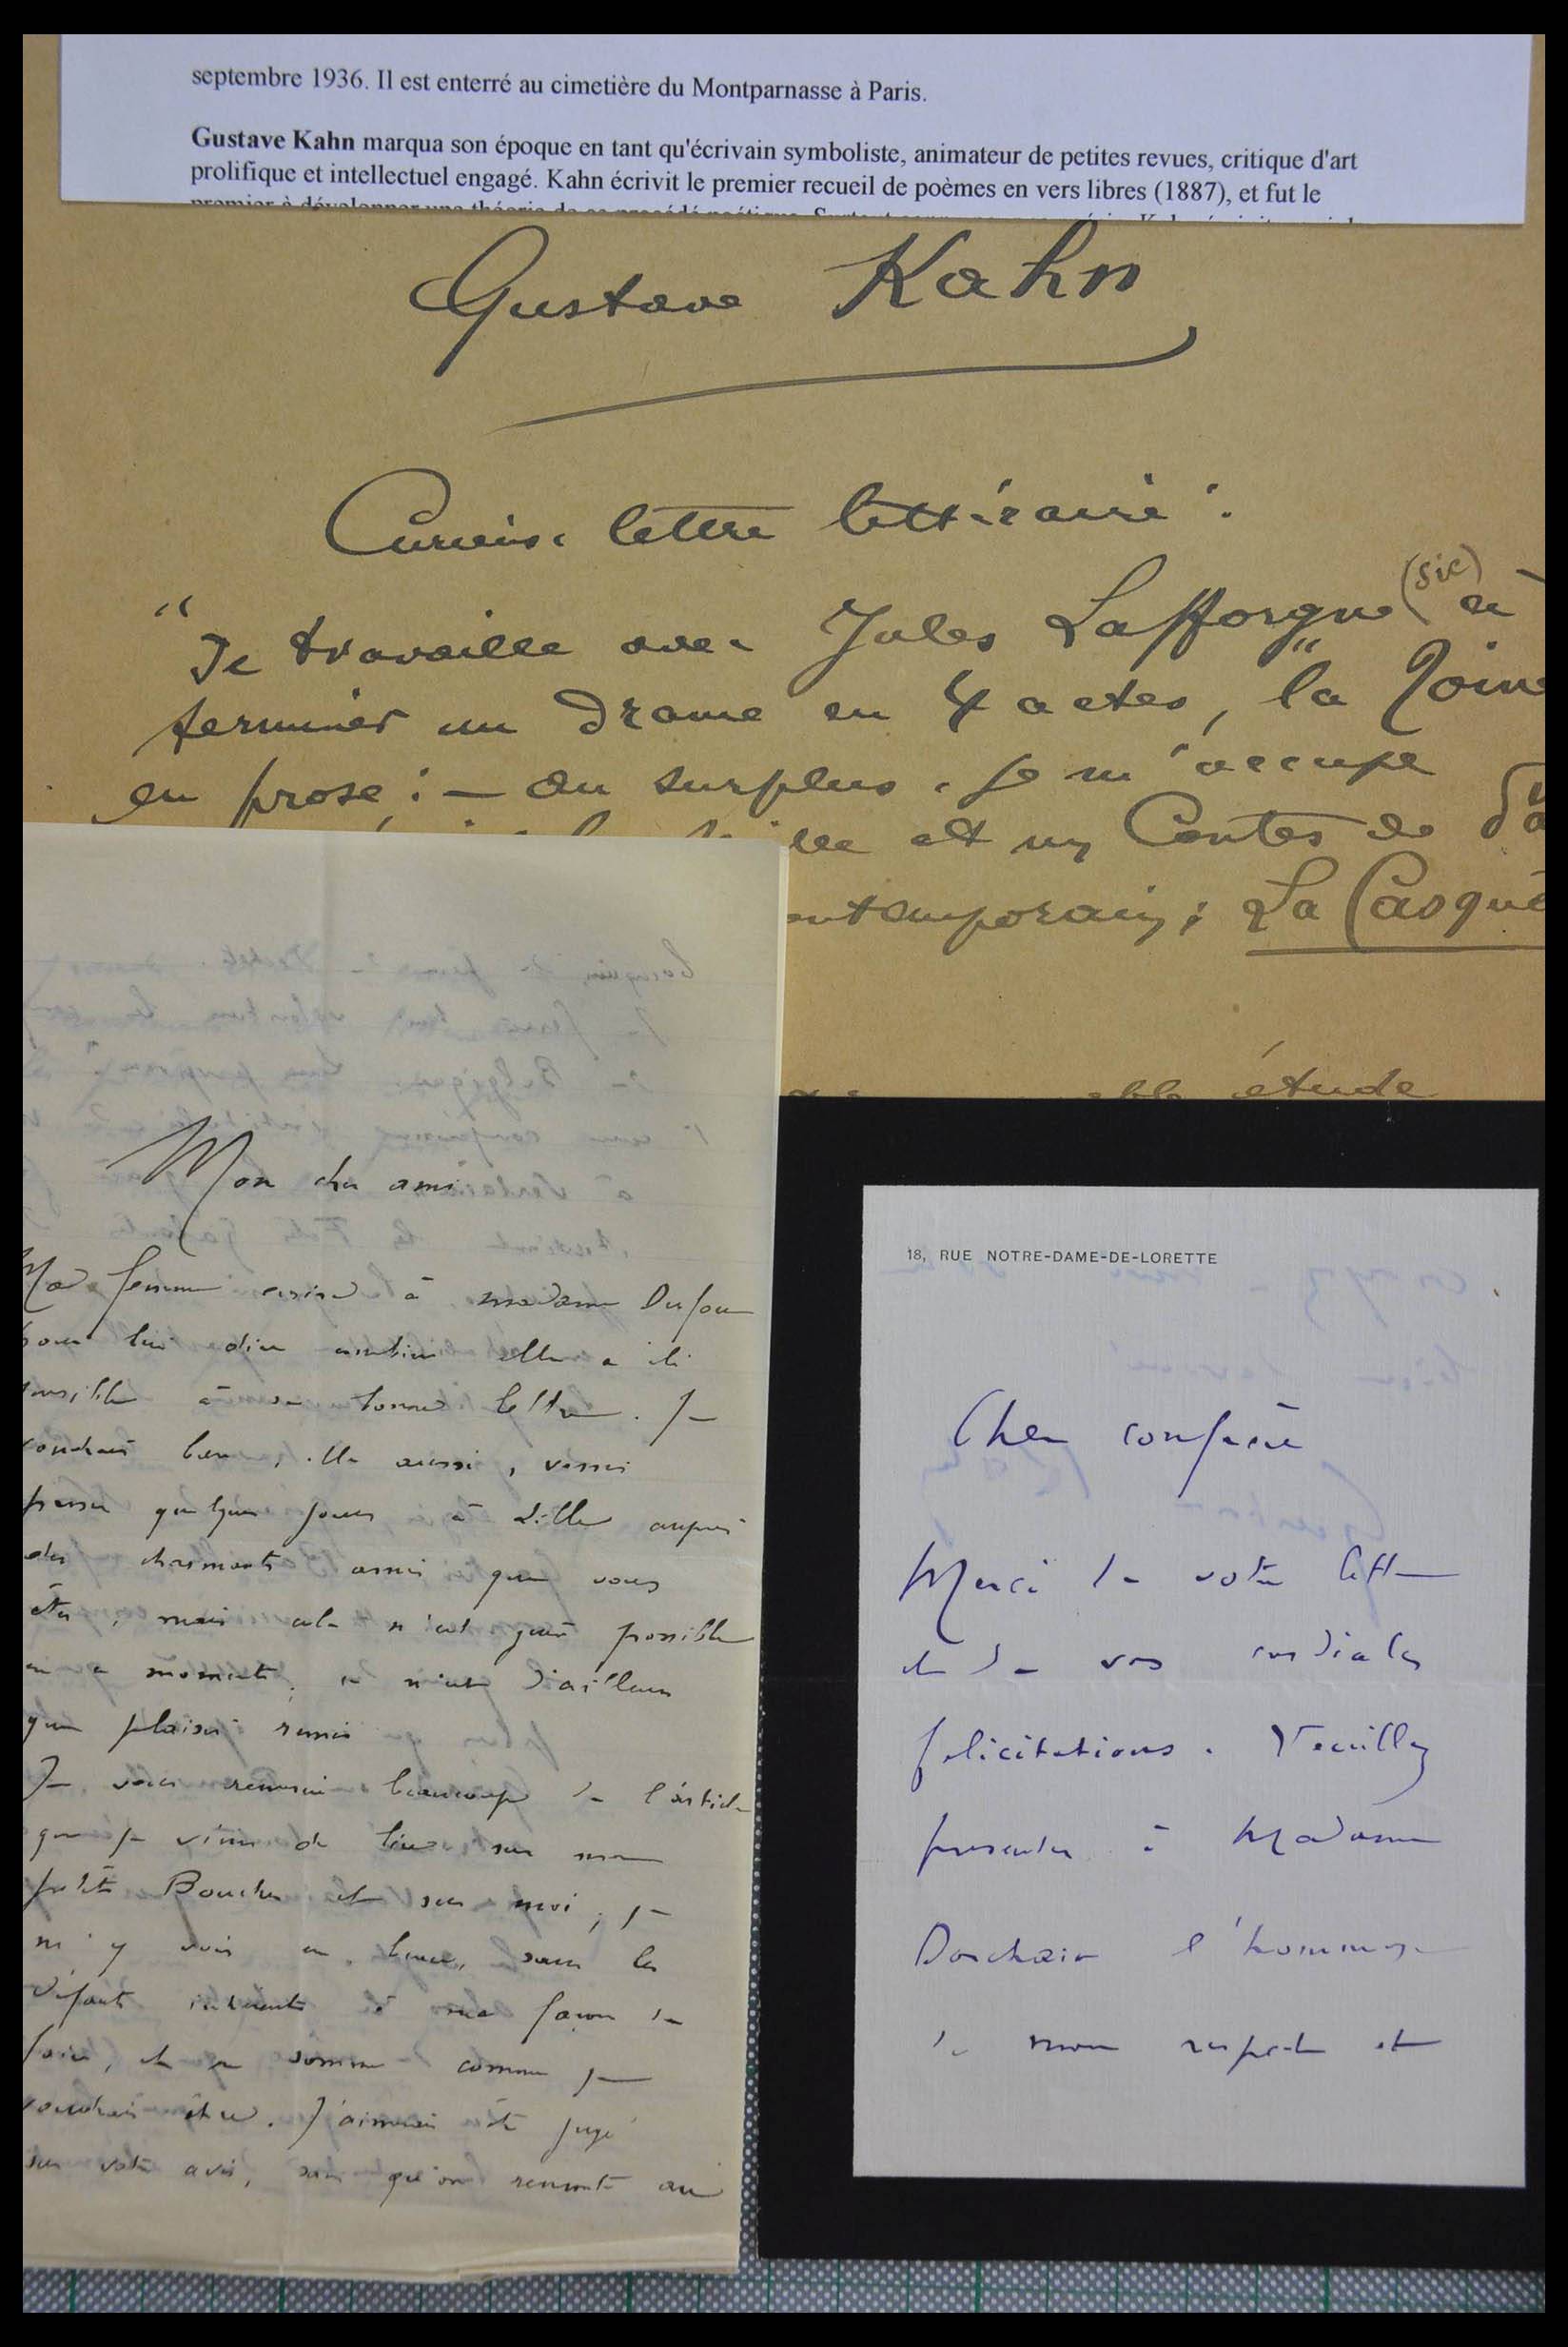 septembre 1936. Il est enterré au cimetière du Montparnasse à Paris.
Gustave Kahn marqua son époque en tant qu'écrivain symboliste, animateur de petites revues, critique d'art
prolifique et intellectuel engagé. Kahn écrivit le premier recueil de poèmes en vers libres (1887), et fut le
premier à développer une théorie de ce procédé poétique.
Gustave Kahn
Curieuse lettre littéraire :
"Je travaille avec Jules Lafforgue (sic) à
terminer un drame en 4 actes, la
en prose : — au surplus, je m'occupe
et un Contes de
contemporain ; La
étude
Mon cher ami
Ma femme écrira à madame Dufour
pour lui dire combien elle a été
sensible à sa bonne lettre. Je
voudrais bien, elle aussi, venir
passer quelques jours à Lille auprès
des charmants amis que vous
êtes, mais cela n'est guère possible
en ce moment, ce n'est d'ailleurs
que plaisir remis
Je vous remercie beaucoup de l'article
que je viens de lire sur mon
petit Boucher et sur moi, je
m'y vois en beau, sans les
défauts inhérents à ma façon de
faire, et en somme comme je
voudrais être. J'aimerais être jugé
sur votre avis, sans qu'on remonte au
18, RUE NOTRE-DAME-DE-LORETTE
Cher confrère
Merci de votre lettre
et de vos cordiales
félicitations. Veuillez
présenter à Madame
Dorchain l'hommage
de mon respect et